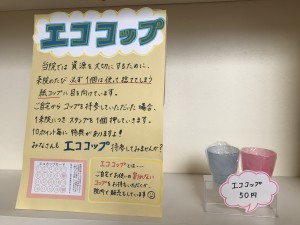 エココップ
当院では 資源を大切にするために、
来院のたび 必ず 1個は使って捨ててしまう
紙コップに目を向けています。
ご自宅から コップを持参していただいた場合、
1来院につき スタンプを1個押していきます。
10ポイント毎に 特典がありますよ!
みなさんも エココップ 持参してみませんか?
エココップとは…
ご自宅でお使いの割れない
コップをお持ちいただくか、
院内で販売もしています
エココップ
50円